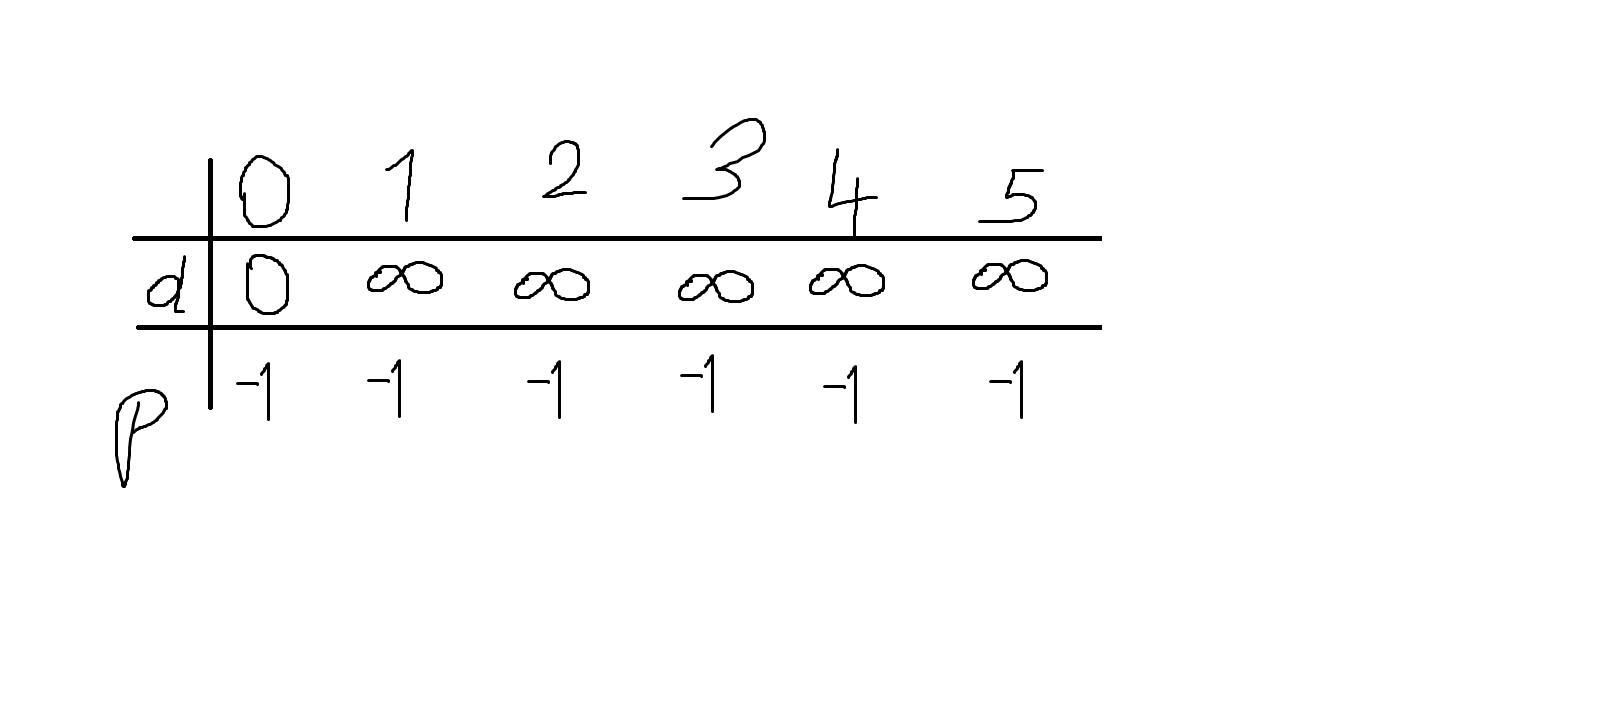 0 1 2 3 4 5
d 0 ∞ ∞ ∞ ∞ ∞
p -1 -1 -1 -1 -1 -1